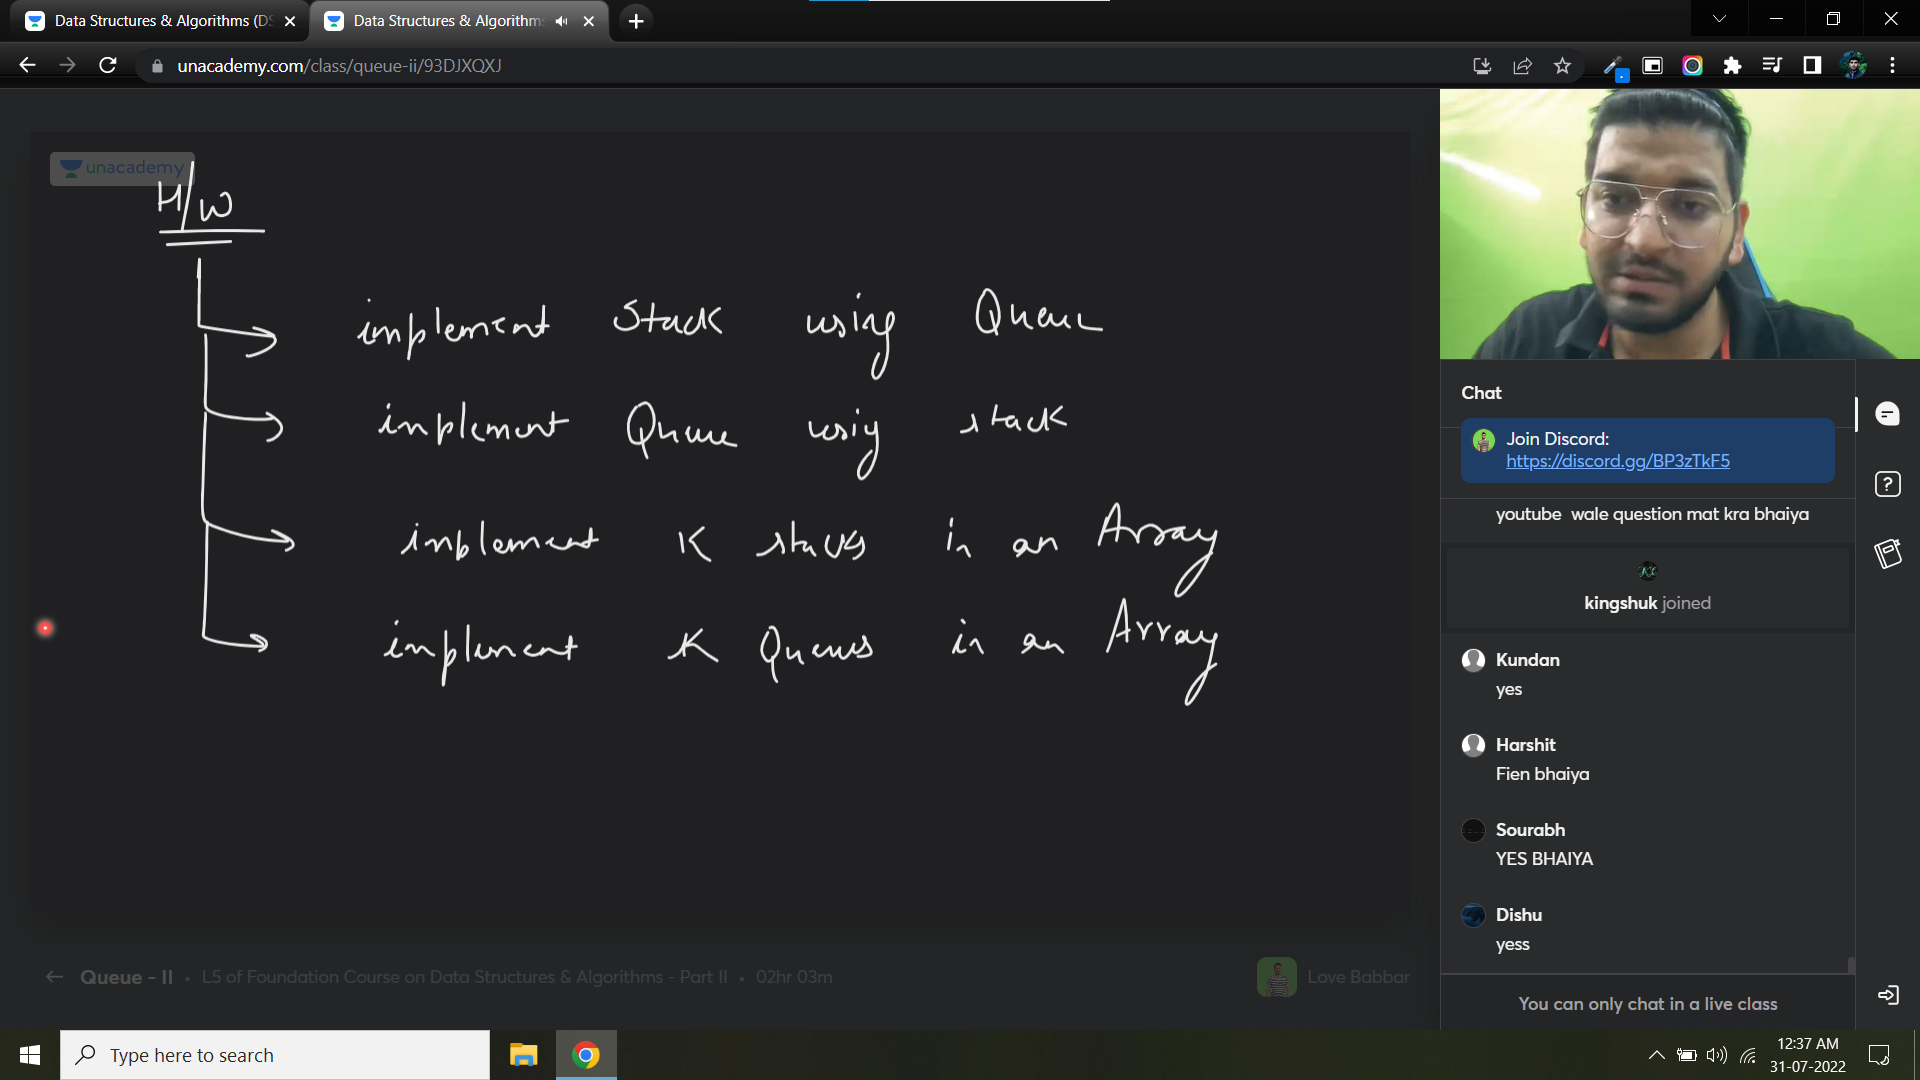 Data Structures & Algorithms (DS
Data Structures & Algorithms
unacademy.com/class/queue-ii/93DJXQXJ
unacademy
H/W
implement Stack using Queue
implement Queue using stack
implement K stacks in an Array
implement K Queues in an Array
Queue - II • L5 of Foundation Course on Data Structures & Algorithms - Part II • 02hr 03m
Love Babbar
Chat
Join Discord:
https://discord.gg/BP3zTkF5
youtube wale question mat kra bhaiya
kingshuk joined
Kundan
yes
Harshit
Fien bhaiya
Sourabh
YES BHAIYA
Dishu
yess
You can only chat in a live class
Type here to search
12:37 AM
31-07-2022